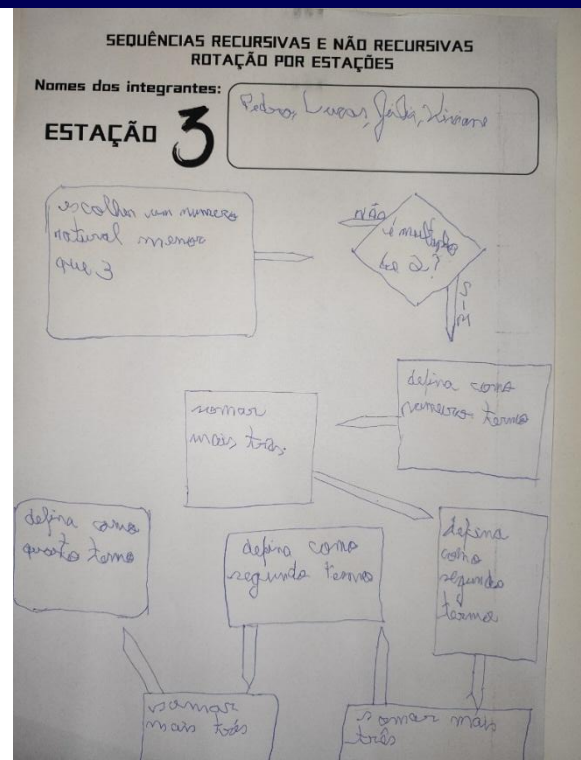 SEQUÊNCIAS RECURSIVAS E NÃO RECURSIVAS
ROTAÇÃO POR ESTAÇÕES
Nomes dos integrantes:
Pedro, Lucas, Júlia, Viviane
ESTAÇÃO 3
escolher um numero
natural menor
que 3
NÃO
é multiplo
de 2?
SIM
defina como
primeiro termo
somar
mais três.
defina como
quarto termo
defina como
segundo termo
defina
como
segundo
termo
somar
mais três
somar mais
três